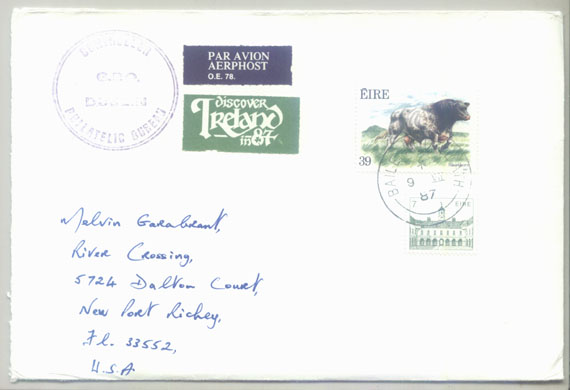 CONTROLLER
G.P.O.
DUBLIN
PHILATELIC BUREAU
PAR AVION
AERPHOST
O.E. 78.
discover
Ireland
in 87
ÉIRE
39
BAILE
9 XII
87
7
ÉIRE
Melvin Garabrant,
River Crossing,
5724 Dalton Court,
New Port Richey,
Fl. 33552,
U.S.A